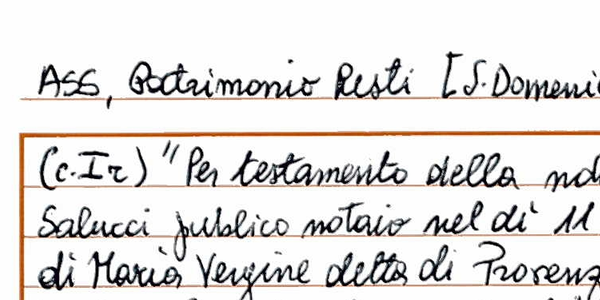 ASS, Patrimonio Resti [S. Domeni
(c. Ir) "Per testamento della
Salucci publico notaio nel dì 11
di Maria Vergine detta di Provenz